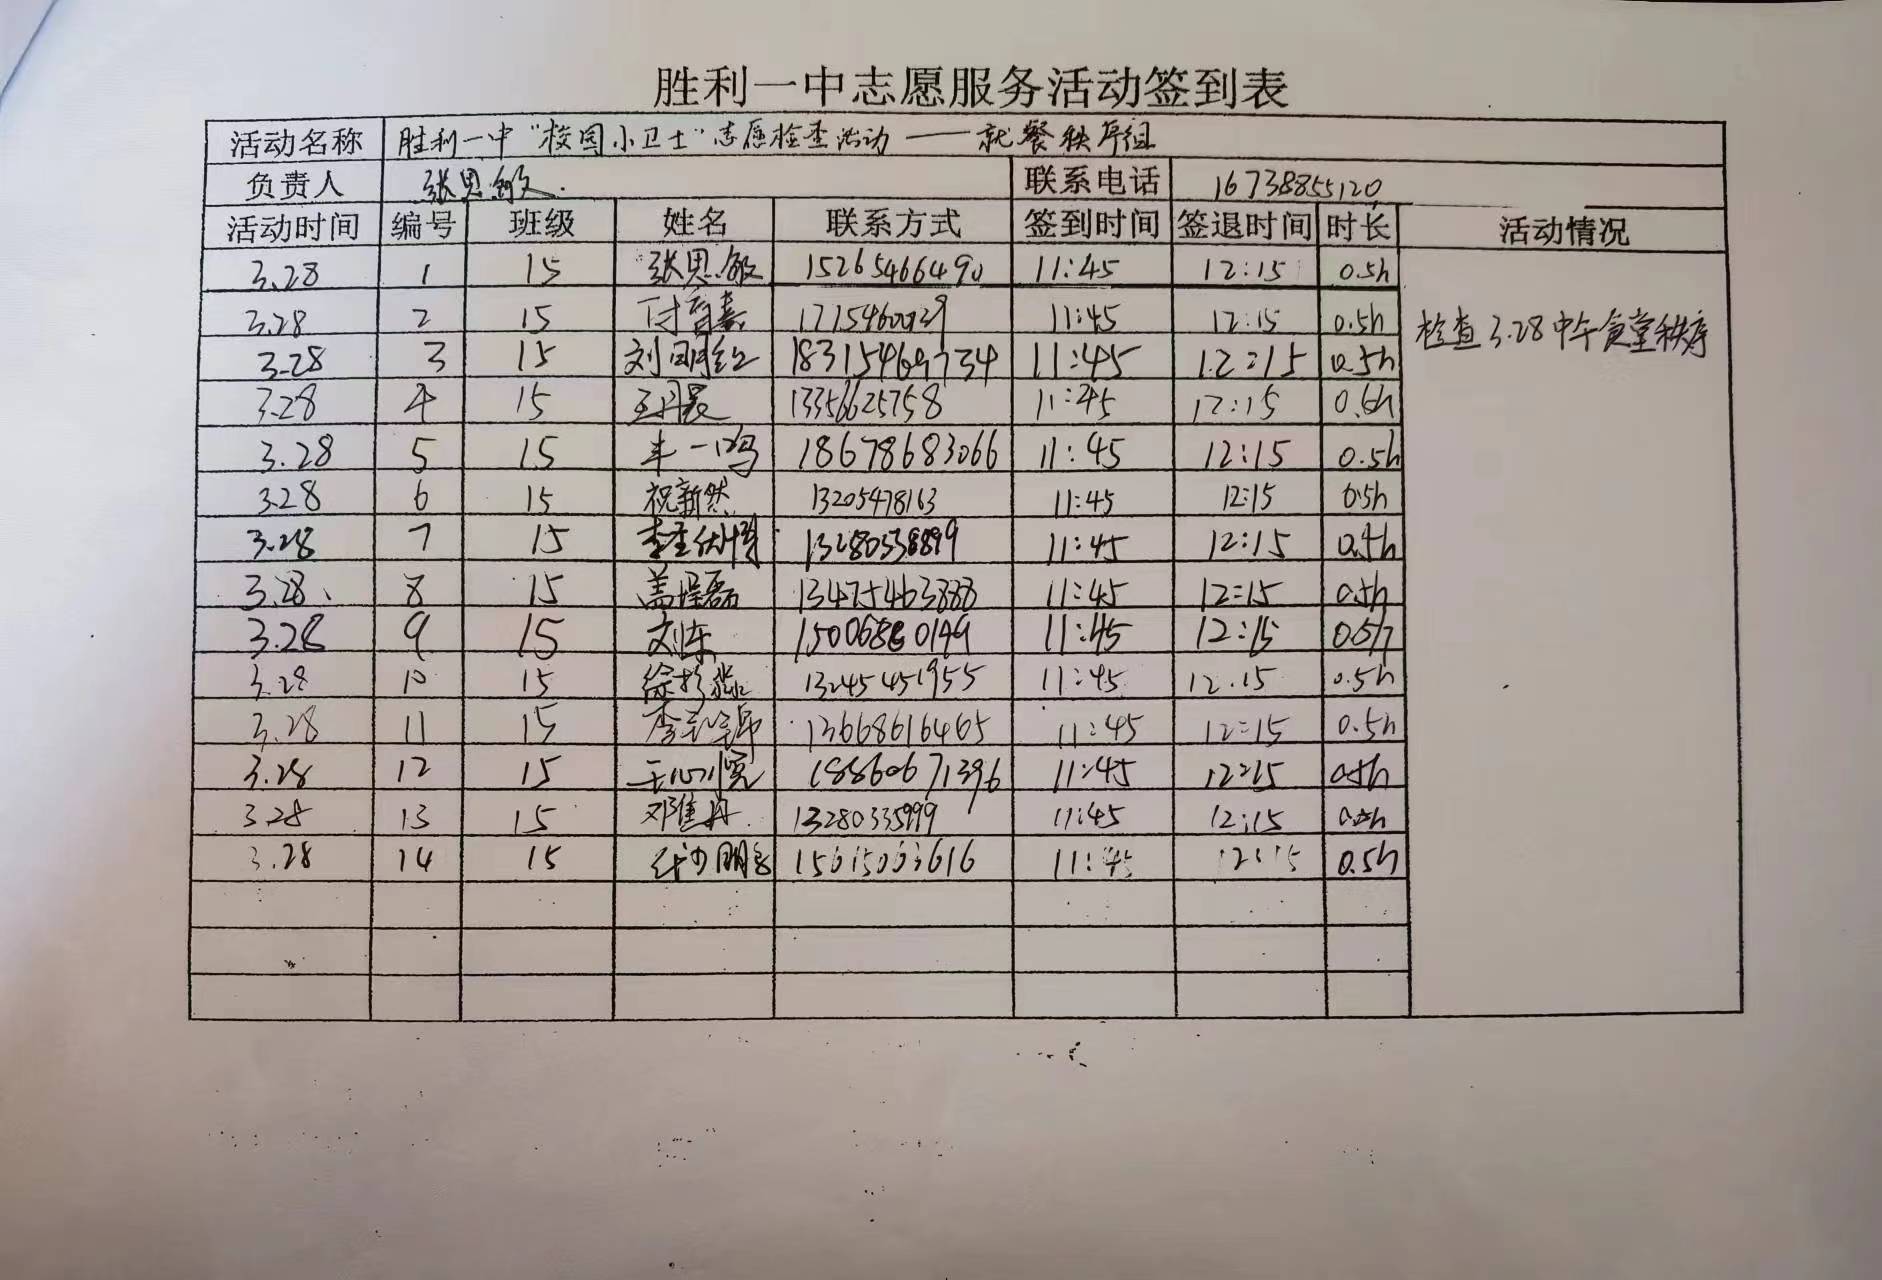 胜利一中志愿服务活动签到表
活动名称 胜利一中“校园小卫士”志愿检查活动——就餐秩序组
负责人 张思敏 联系电话 16738855120
活动时间 编号 班级 姓名 联系方式 签到时间 签退时间 时长 活动情况
3.28 1 15 张思敏 15265466490 11:45 12:15 0.5h
3.28 2 15 11:45 12:15 0.5h
检查3.28中午食堂秩序
3.28 3 15 18315469734 11:45 12:15 0.5h
3.28 4 15 13356625758 11:45 12:15
3.28 5 15 丰一鸣 18678683066 11:45 12:15 0.5h
3.28 6 15 祝新然 13205478163 11:45 12:15 0.5h
3.28 7 15 11:45 12:15 0.5h
3.28 8 15 11:45 12:15 0.5h
3.28 9 15 刘东 11:45 12:15 0.5h
3.28 10 15 13245451955 11:45 12.15 0.5h
3.28 11 15 13668616465 11:45 12:15 0.5h
3.28 12 15 王心悦 18860671396 11:45 12:15 0.5h
3.28 13 15 13280335999 11:45 12:15 0.5h
3.28 14 15 15615063616 11:45 12:15 0.5h